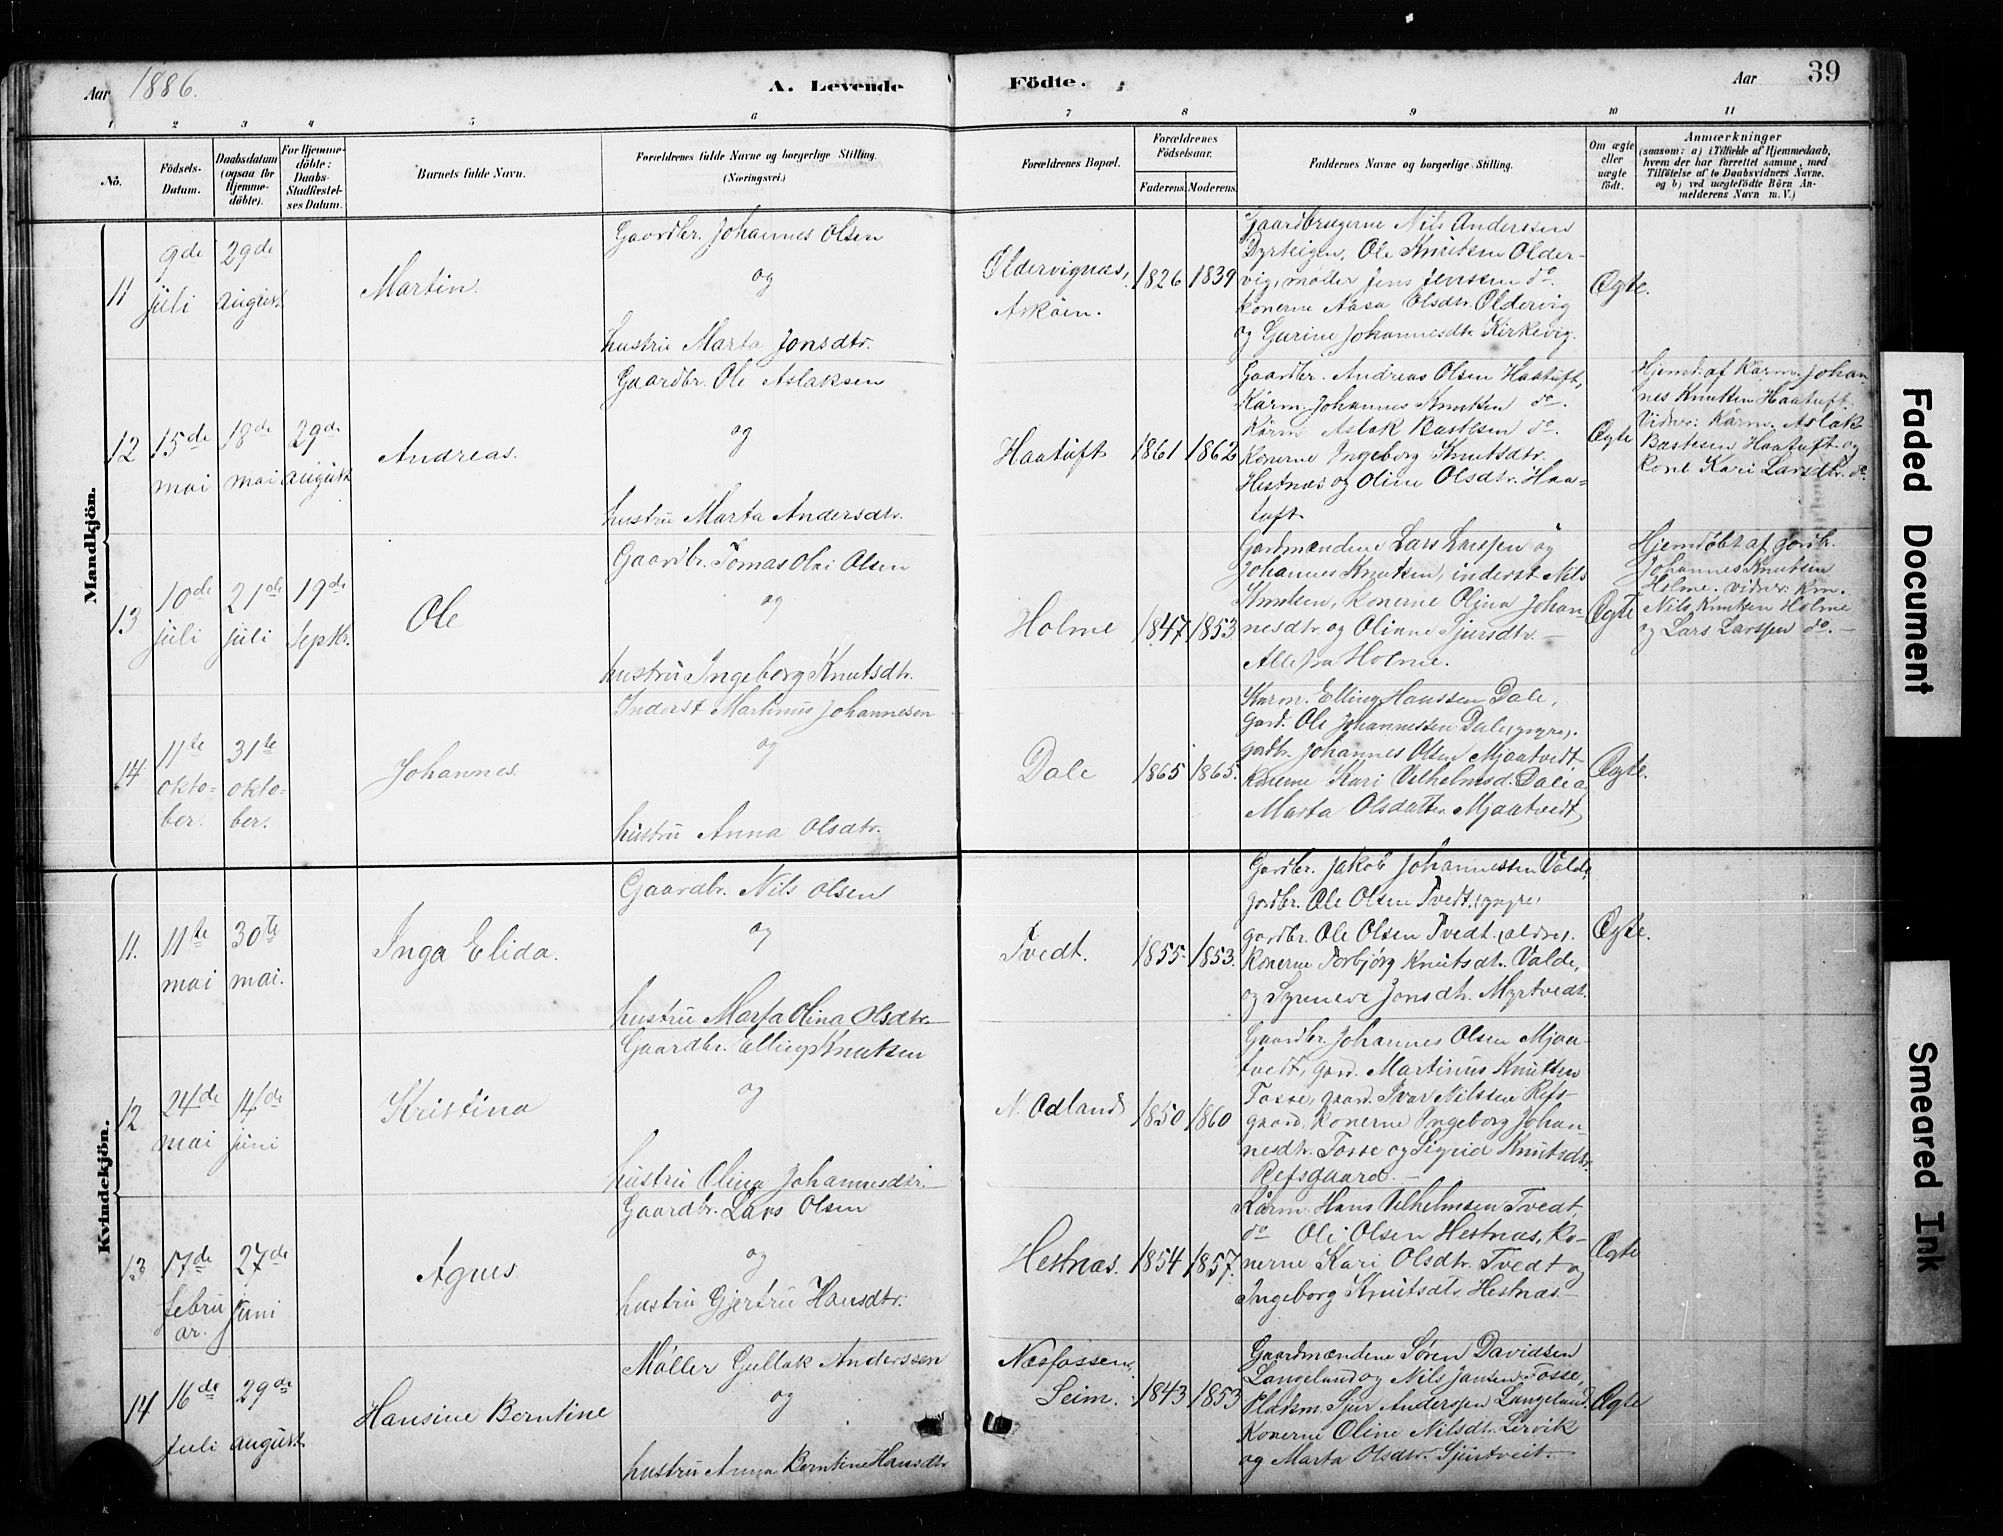 Aar 1886.
A. Levende
Födte.
Aar
39
1 2 3 4 5 6 7 8 9 10 11
No.
Födsels-Datum.
Daabsdatum (ogsaa for Hjemme-döbte).
For Hjemme-döbte: Daabs-Stadfæstel-ses Datum.
Barnets fulde Navn.
Forældrenes fulde Navne og borgerlige Stilling.
(Næringsvei.)
Forældrenes Bopæl.
Forældrenes Födselsaar.
Faderens. Moderens.
Faddernes Navne og borgerlige Stilling.
Om ægte eller uægte födt.
Anmærkninger
(saasom: a) i Tilfælde af Hjemmedaab, hvem der har forrettet samme, med Tilföielse af to Daabsvidners Navne, og b) ved uægtefödte Börn An-melderens Navn m. V.)
Mandkjön.
11
9de juli
29de august
Martin.
Gaardbr. Johannes Olsen
og
hustru Marta Jonsdtr.
Oldervignæs,
Askøen.
1826
1839
Gaardbrugerne Nils Anderssen
Dyrteigen, Ole Knutsen Older-
vig, møller Jens Jenssen do.
konerne Aasa Olsdtr. Oldervig
og Gurine Johannesdtr. Kirkevig.
Ægte.
12
15de mai
18de mai
29de august
Andreas.
Gaardbr. Ole Aslaksen
og
hustru Marta Andersdtr.
Haatuft
1861
1862
Gaardbr. Andreas Olsen Haatuft,
Kårm. Johannes Knutsen do.
Kårm Aslak Bastesen do.
Konerne Ingeborg Knutsdtr.
Hestnæs og Oline Olsdtr. Haa-
tuft.
Ægte
Hjemd. af Kårm. Johan-
nes Knutsen Haatuft.
Vidner: Kårm. Aslak
Bastesen Haatuft og
Kone Kari Larsdtr. do.
13
10de juli
21de juli
19de Septbr.
Ole
Gaardbr. Tomas Olai Olsen
og
hustru Ingeborg Knutsdtr.
Holme
1847
1853
Gardmændene Lars Larssen og
Johannes Knutsen, inderst Nils
Knutsen, konerne Olina Johan-
nesdtr. og Oliane Sjursdtr. —
Alle fra Holme.
Ægte
Hjemdøbt af gardbr.
Johannes Knutsen
Holme. vidner: Km.
Nils Knutsen Holme
og Lars Larssen do. —
14
11te okto-
ber.
31te okto-
ber.
Johannes.
Inderst Martinus Johannesen
og
hustru Anna Olsdtr.
Dale
1865
1865.
Kårm. Elling Hanssen Dale,
gard. Ole Johannessen Dale (yngre).
gardbr. Johannes Olsen Mjaatvedt
Konerne Kari Vilhelmsd. Dale og
Marta Olsdatter Mjaatvedt
Ægte.
Kvindekjön.
11.
11te mai
30te mai.
Inga Elida.
Gaardbr. Nils Olsen
og
hustru Marta Olina Olsdtr.
Tvedt.
1855
1853.
Gardbr. Jakob Johannessen Valde,
gardbr. Ole Olsen Tvedt. (yngre)
gardbr. Ole Olsen Tvedt. (ældre).
Konerne Torbjørg Knutsdtr. Valde,
og Synneve Jonsdtr. Myrtvedt.
Ægte.
12
24de mai
14de juni
Kristina
Gaardbr. Elling Knutsen
og
hustru Olina Johannesdtr.
N. Odland
1850
1860
Gaardbr. Johannes Olsen Mjaa-
tvedt, gard. Martinus Knutsen
Fosse, gaard. Ivar Nilssen Refs-
gaard, konerne Ingeborg Johan-
nesdtr. Fosse og Sigrid Knutsdtr.
Refsgaard. —
13
17de febru
ar.
27de juni
Agnes.
Gaardbr. Lars Olsen
og
hustru Gjertru Hansdtr.
Hestnæs.
1854
1857.
Kårm. Hans Vilhelmsen Tvedt,
do Oli Olsen Hestnæs, Ko-
nerne Kari Olsdtr. Tvedt og
Ingeborg Knutsdtr. Hestnæs —
Ægte
14
16de Juli
29de august
Hansine Berntine
Møller Gullak Anderssen
og
hustru Anna Berntine Hansdtr.
Næsfossen,
Seim.
1843
1853
Gaardmændene Søren Davidsen
Langeland og Nils Jansen Fosse,
Pladsm. Sjur Anderssen Langeland.
Konerne Oline Nilsdtr. Lervik
og Marta Olsdtr. Sjurtveit.
Ægte
Faded Document
Smeared Ink